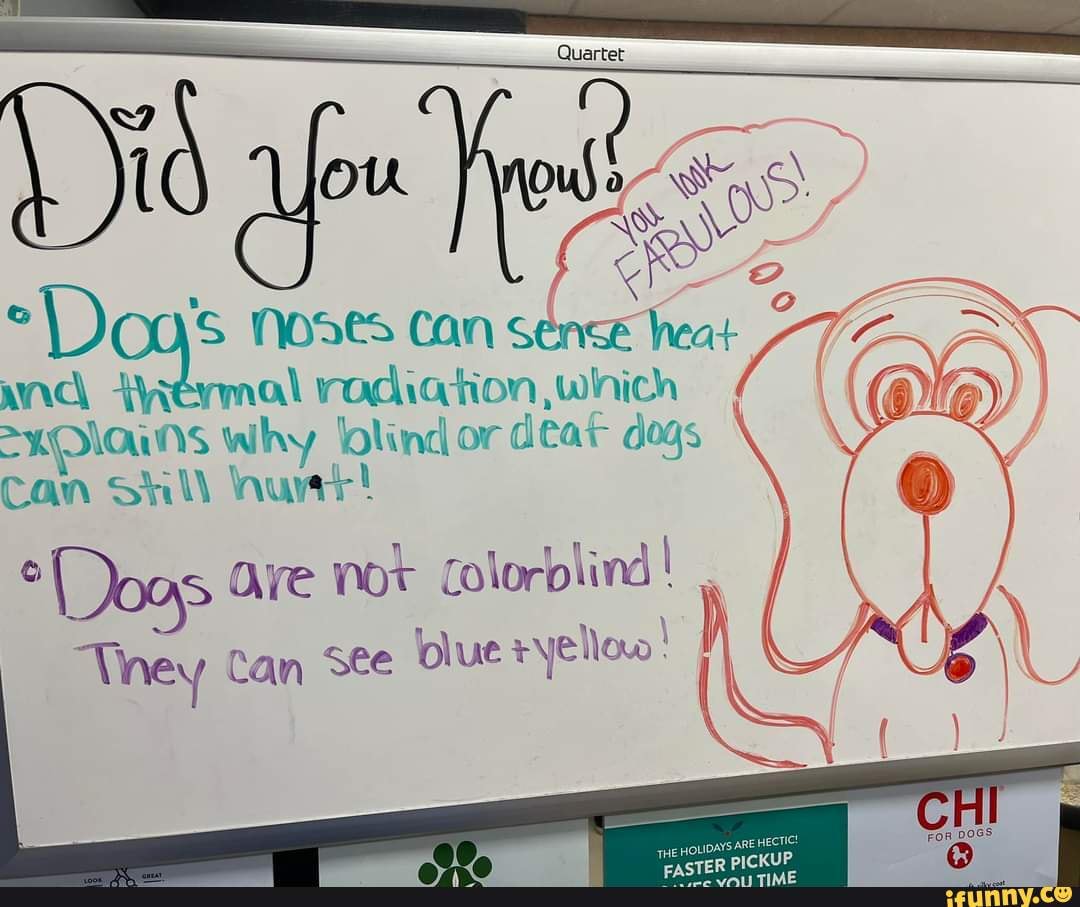 Quartet
Did you Know?
you look
FABULOUS!
• Dog's noses can sense heat
and thermal radiation, which
explains why blind or deaf dogs
can still hunt!
• Dogs are not colorblind!
They can see blue + yellow!
LOOK GREAT
THE HOLIDAYS ARE HECTIC!
FASTER PICKUP
YOU TIME
CHI
FOR DOGS
coat
ifunny.co